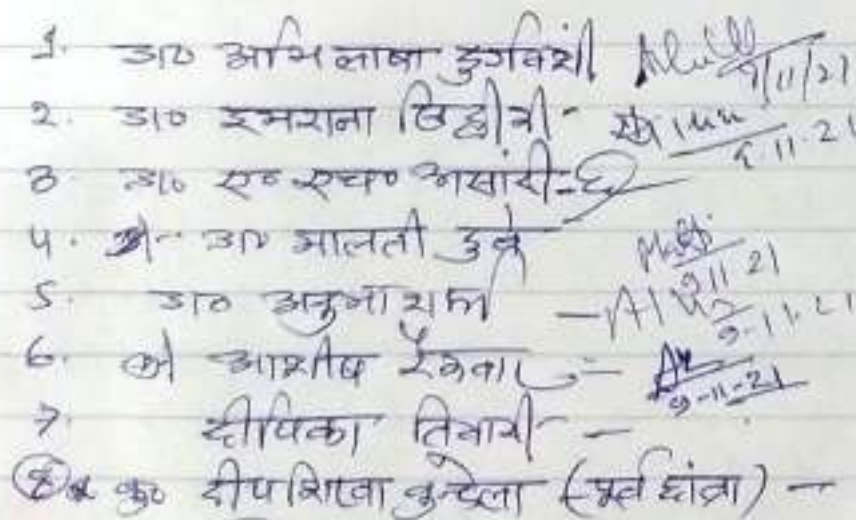 1. डा० अभिलाषा दुर्गवंशी 9/11/21
2. डा० इमराना सिद्दीकी - 9.11.21
3. डा० ए० एच० अंसारी -
4. डा० मालती दुबे 9.11.21
5. डा० शर्मा - 9-11-21
6. आशीष रैकवार - 9-11-21
7. दीपिका तिवारी -
8. कु० दीपशिखा बुन्देला (पूर्व छात्रा) -